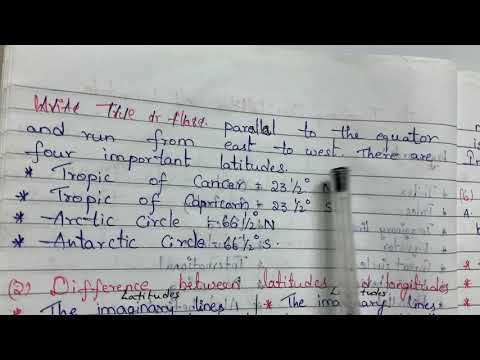 Write True or False.
parallel to the equator
and run from east to west. There are
four important latitudes.
* Tropic of Cancer = 23 1/2° N
* Tropic of Capricorn = 23 1/2° S
* Arctic Circle = 66 1/2° N
* Antarctic Circle = 66 1/2° S.
(2) Difference between latitudes longitudes
Latitudes
* The imaginary lines * The imaginary lines
(6)
A.